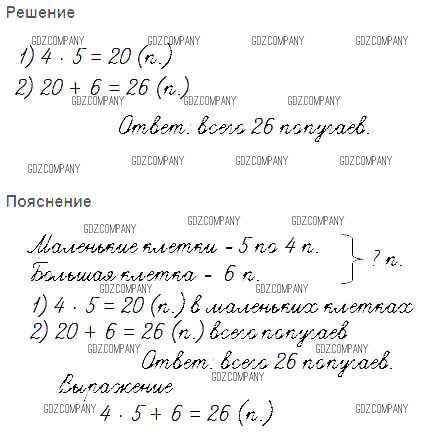 Решение
GDZCOMPANY GDZCOMPANY GDZCOMPANY
1) 4 · 5 = 20 (п.)
2) 20 + 6 = 26 (п.)
GDZCOMPANY GDZCOMPANY GDZCOMPANY
Ответ: всего 26 попугаев.
GDZCOMPANY GDZCOMPANY GDZCOMPANY
Пояснение
GDZCOMPANY GDZCOMPANY GDZCOMPANY
Маленькие клетки - 5 по 4 п.
Большая клетка - 6 п.
? п.
GDZCOMPANY GDZCOMPANY GDZCOMPANY
1) 4 · 5 = 20 (п.) в маленьких клетках
2) 20 + 6 = 26 (п.) всего попугаев
GDZCOMPANY GDZCOMPANY
Ответ: всего 26 попугаев.
GDZCOMPANY
Выражение
GDZCOMPANY GDZCOMPANY
4 · 5 + 6 = 26 (п.)